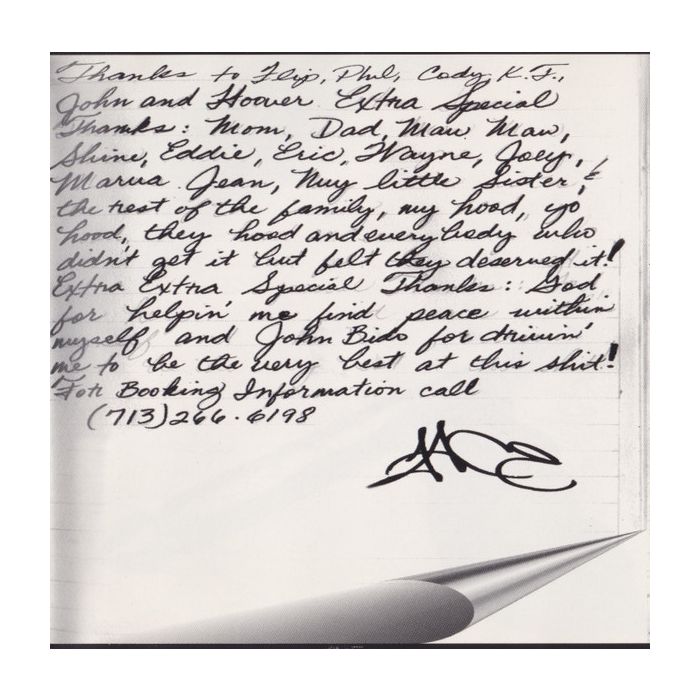 Thanks to Flip, Phil, Cody, K.F.,
John and Hoover Extra Special
Thanks: Mom, Dad, Maw Maw,
Shine, Eddie, Eric, Wayne, Joey,
Marva Jean, Nuy little Sister, &
the rest of the family, my hood, yo
hood, they hood and everybody who
didn't get it but felt they deserved it!
Extra Extra Special Thanks: God
for helpin' me find peace within
myself and John Bido for drivin'
me to be the very best at this shit!
For Booking Information call
(713)266-6198